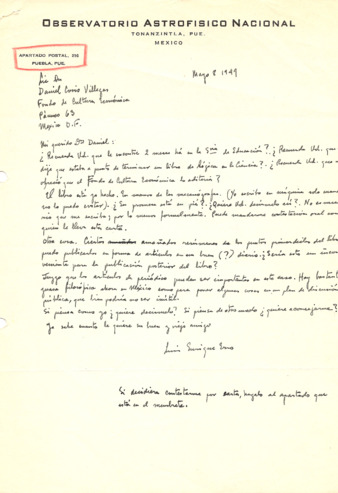 OBSERVATORIO ASTROFISICO NACIONAL
TONANZINTLA, PUE.
MEXICO
APARTADO POSTAL, 216
PUEBLA, PUE.
Mayo 8 1949
Lic Dn
Daniel Cosío Villegas
Fondo de Cultura Económica
Pánuco 63
Mexico D.F.
Mi querido Don Daniel:
¿Recuerda Ud. que le encontré 2 meses há en la Sría de Educación? ¿Recuerda Ud. que
dije que estaba a punto de terminar un libro de Lógica en la Ciencia? ¿Recuerda Ud. que
ofreció que el Fondo de Cultura Económica lo editaría?
El libro está ya hecho. En manos de las mecanógrafas. (Yo escribo en máquina solo cuando
no lo puedo evitar). ¿Su promesa está en pié? ¿Quiere Ud. decírmelo así? No es
que me escriba, por lo menos formalmente. Puede mandarme contestación oral con
quien le lleva esta carta.
Otra cosa. Ciertos amañados resúmenes de los puntos primordiales del libro
puedo publicarlos en forma de artículos en un buen (?) diario. ¿Sería esto un
para la publicación posterior del libro?
Juzgo que los artículos de periódico pueden ser importantes en este caso. Hay bastante
filosófica ahora en México como para poner algunas cosas en un plan de discusión
pública, que bien podría no ser inútil.
Si piensa como yo ¿quiere decírmelo? Si piensa de otro modo ¿quiere aconsejarme?
Ya sabe cuanto le quiere su buen y viejo amigo
Luis Enrique Erro
Si decidiera contestarme por carta, hágalo al apartado que
está en el membrete.